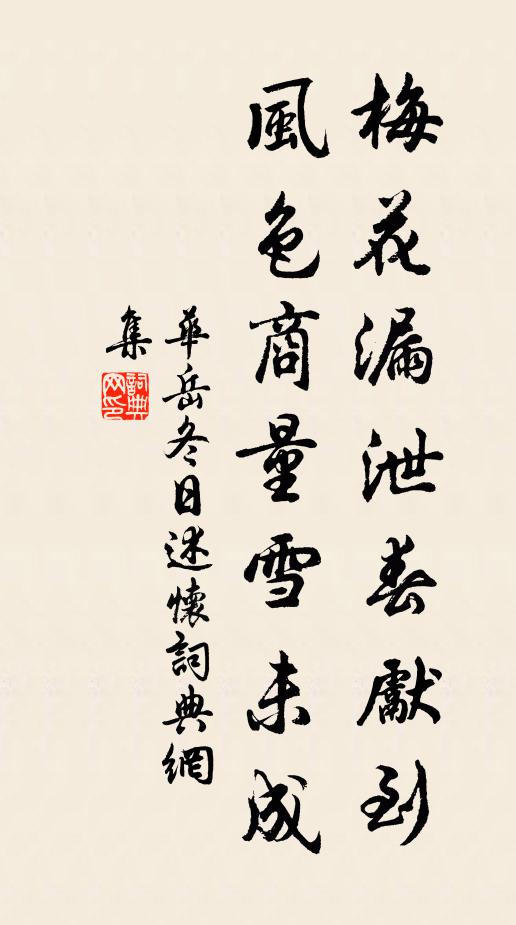 梅花漏泄春獻到
風色商量雪未成
華岳冬日述懷詞典網
集
詞典網印